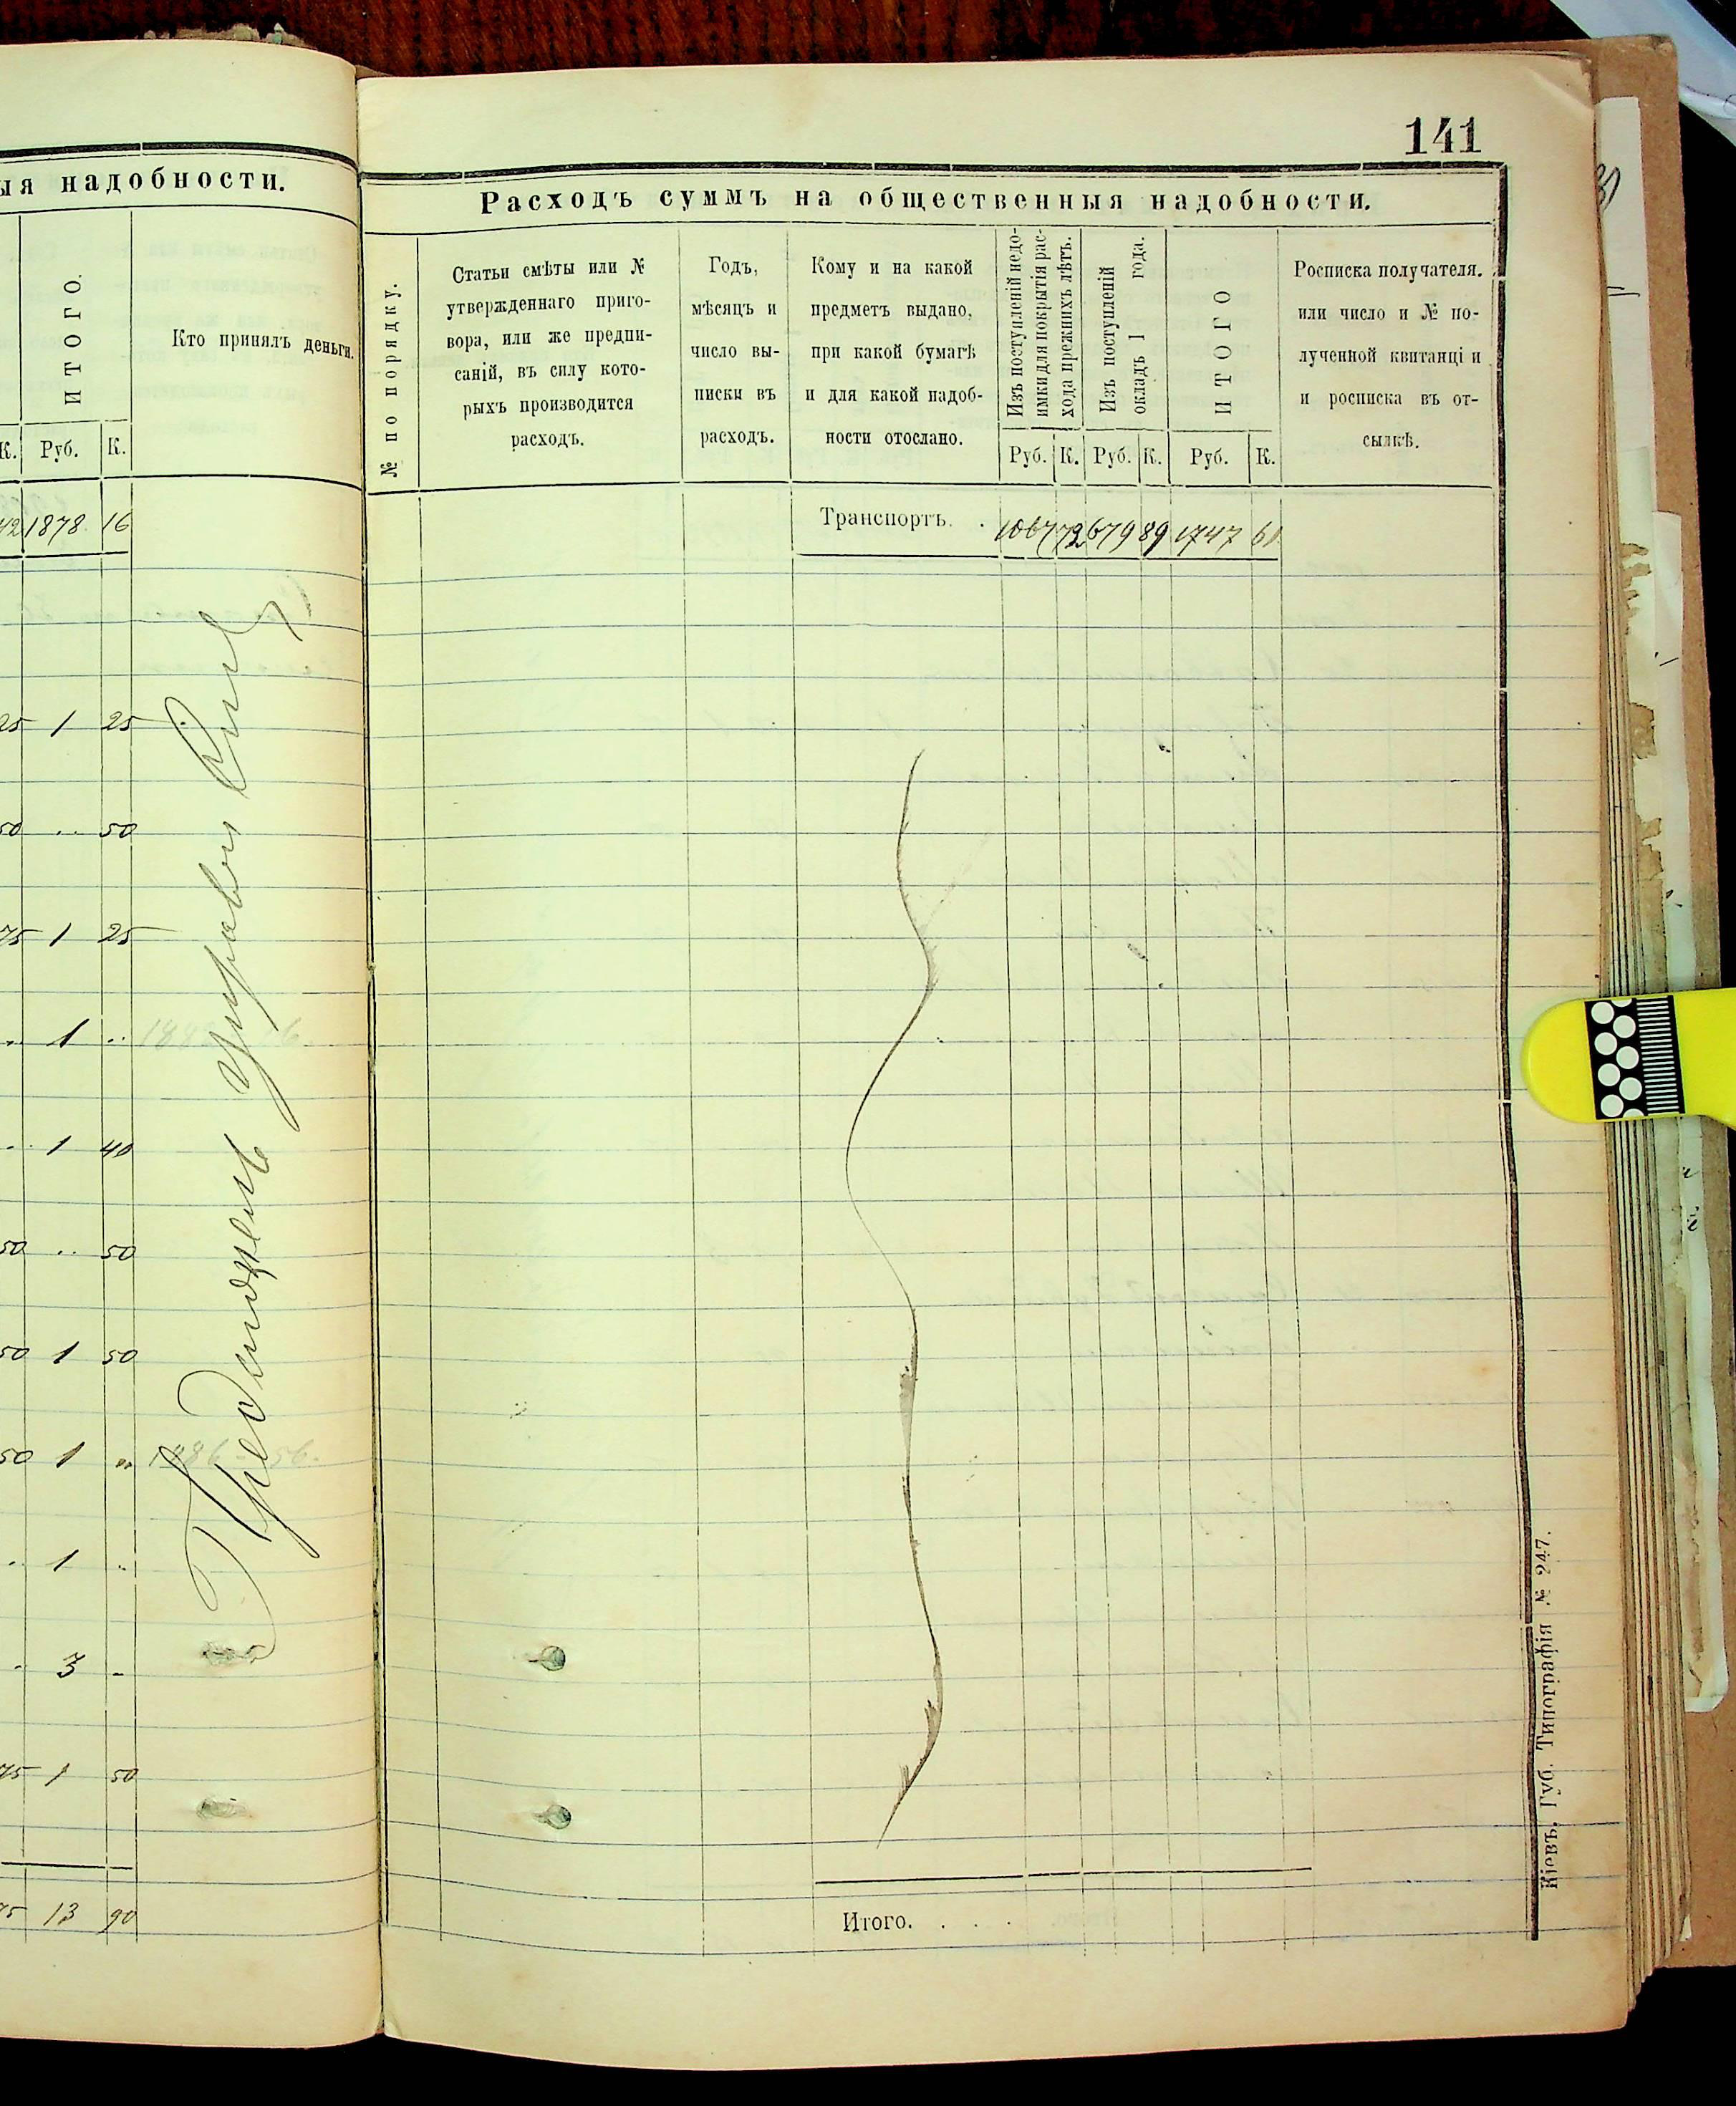 141
ыя надобности.
ИТОГО.
Кто принялъ деньги.
К. Руб. К.
42 1878 16
25 1 25
50 .. 50
75 1 25
.. 1 ..
.. 1 40
50 .. 50
50 1 50
50 1 „
. 1 ..
. 3 -
75 1 50
75 13 90
Расходъ суммъ на общественныя надобности.
№ по порядку.
Статьи смѣты или №
утвержденнаго приго-
вора, или же предпи-
саній, въ силу кото-
рыхъ производится
расходъ.
Годъ,
мѣсяцъ и
число вы-
писки въ
расходъ.
Кому и на какой
предметъ выдано,
при какой бумагѣ
и для какой надоб-
ности отослано.
Изъ поступленій недо-
имки для покрытія рас-
хода прежнихъ лѣтъ.
Изъ поступленій
окладъ 1 года.
ИТОГО
Росписка получателя.
или число и № по-
лученной квитанціи
и росписка въ от-
сылкѣ.
Руб. К. Руб. К. Руб. К.
Транспортъ. . 1067 72 679 89 1747 61
Итого. . . .
Кіевъ. Губ. Типографія № 247.